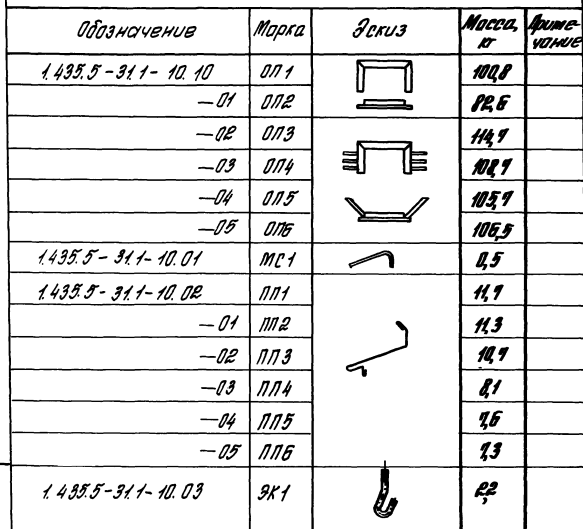 Обозначение Марка Эскиз Масса, кг Примечание
1.435.5-31.1-10.10 ОП1 100,8
-01 ОП2 82,6
-02 ОП3 114,7
-03 ОП4 108,7
-04 ОП5 105,7
-05 ОП6 106,5
1.435.5-31.1-10.01 МС1 0,5
1.435.5-31.1-10.02 ПП1 11,7
-01 ПП2 11,3
-02 ПП3 10,7
-03 ПП4 8,1
-04 ПП5 7,6
-05 ПП6 7,3
1.435.5-31.1-10.03 ЭК1 2,2